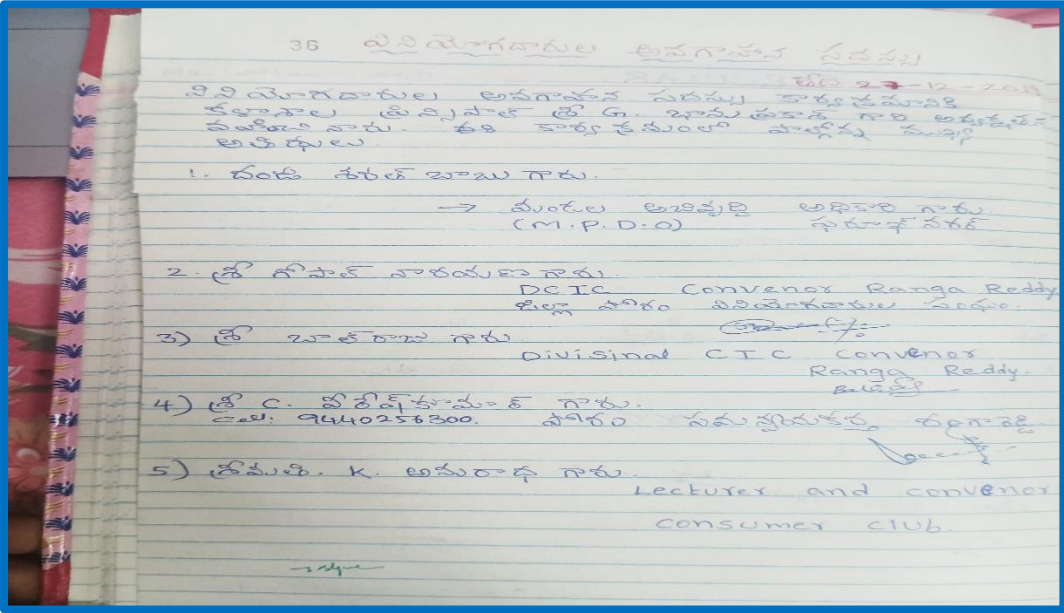 36 వినియోగదారుల అవగాహన సదస్సు
తేది 27-12-2019
వినియోగదారుల అవగాహన సదస్సు కార్యక్రమానికి
కళాశాల ప్రిన్సిపాల్ శ్రీ G. భాను ప్రకాశ్ గారి అధ్యక్షతన
వహించినారు. ఈ కార్యక్రమంలో పాల్గొన్న ముఖ్య
అతిథులు.
1. దండి శరత్ బాబు గారు.
→ మండల అభివృద్ధి అధికారి గారు
(M.P.D.O) ఫరూఖ్ నగర్
2. శ్రీ గోపాల్ నారాయణ గారు.
DCIC Convenor Ranga Reddy
జిల్లా పౌరం వినియోగదారుల సంఘం.
3) శ్రీ బాల్ రాజు గారు
Divisinal CIC Convenor
Ranga Reddy.
4) శ్రీ C. హరీష్ కుమార్ గారు.
Cell: 9440256300. పౌరం సమన్వయకర్త రంగారెడ్డి.
5) శ్రీమతి. K. అనురాధ గారు.
Lecturer and convenor
consumer club.